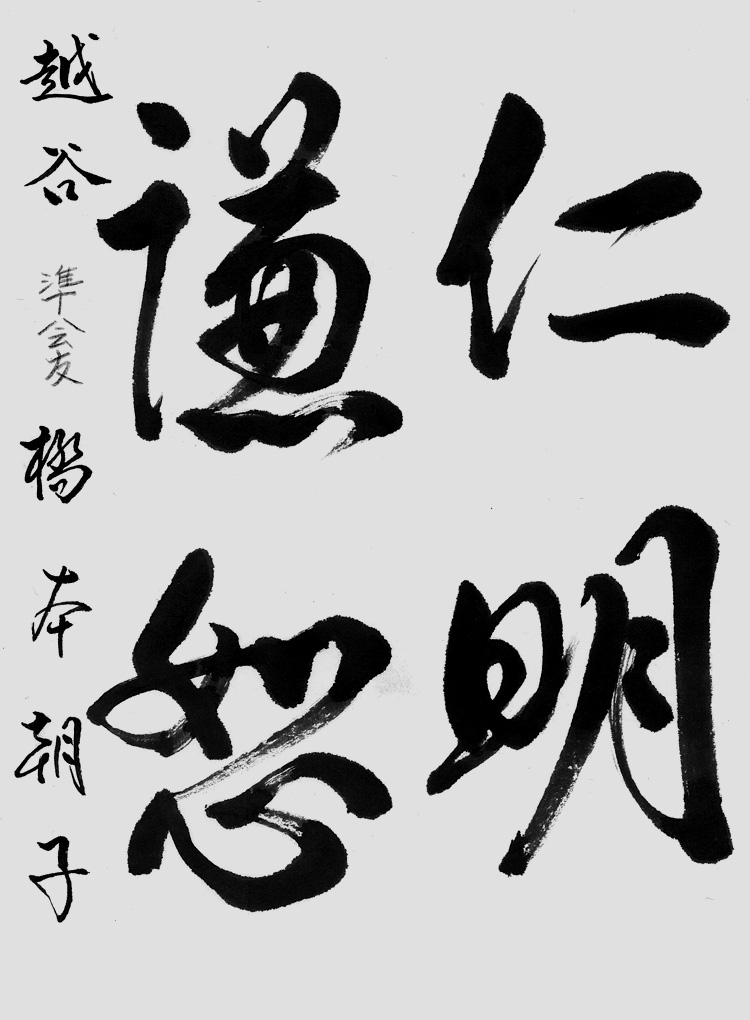 仁明
謙恕
越谷 準会友 橋本朝子